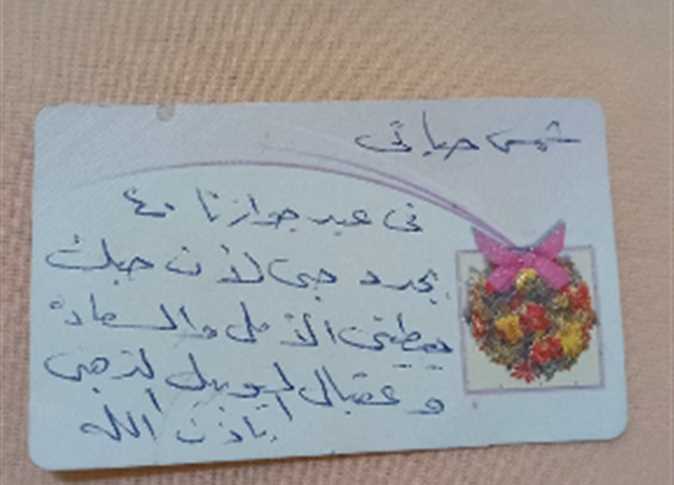 شمس حياتى
فى عيد جوازنا ٤٠
يتجدد حبى لأن حبك
يعطينى الأمل والسعادة
وعقبال اليوبيل الذهبى
بإذن الله